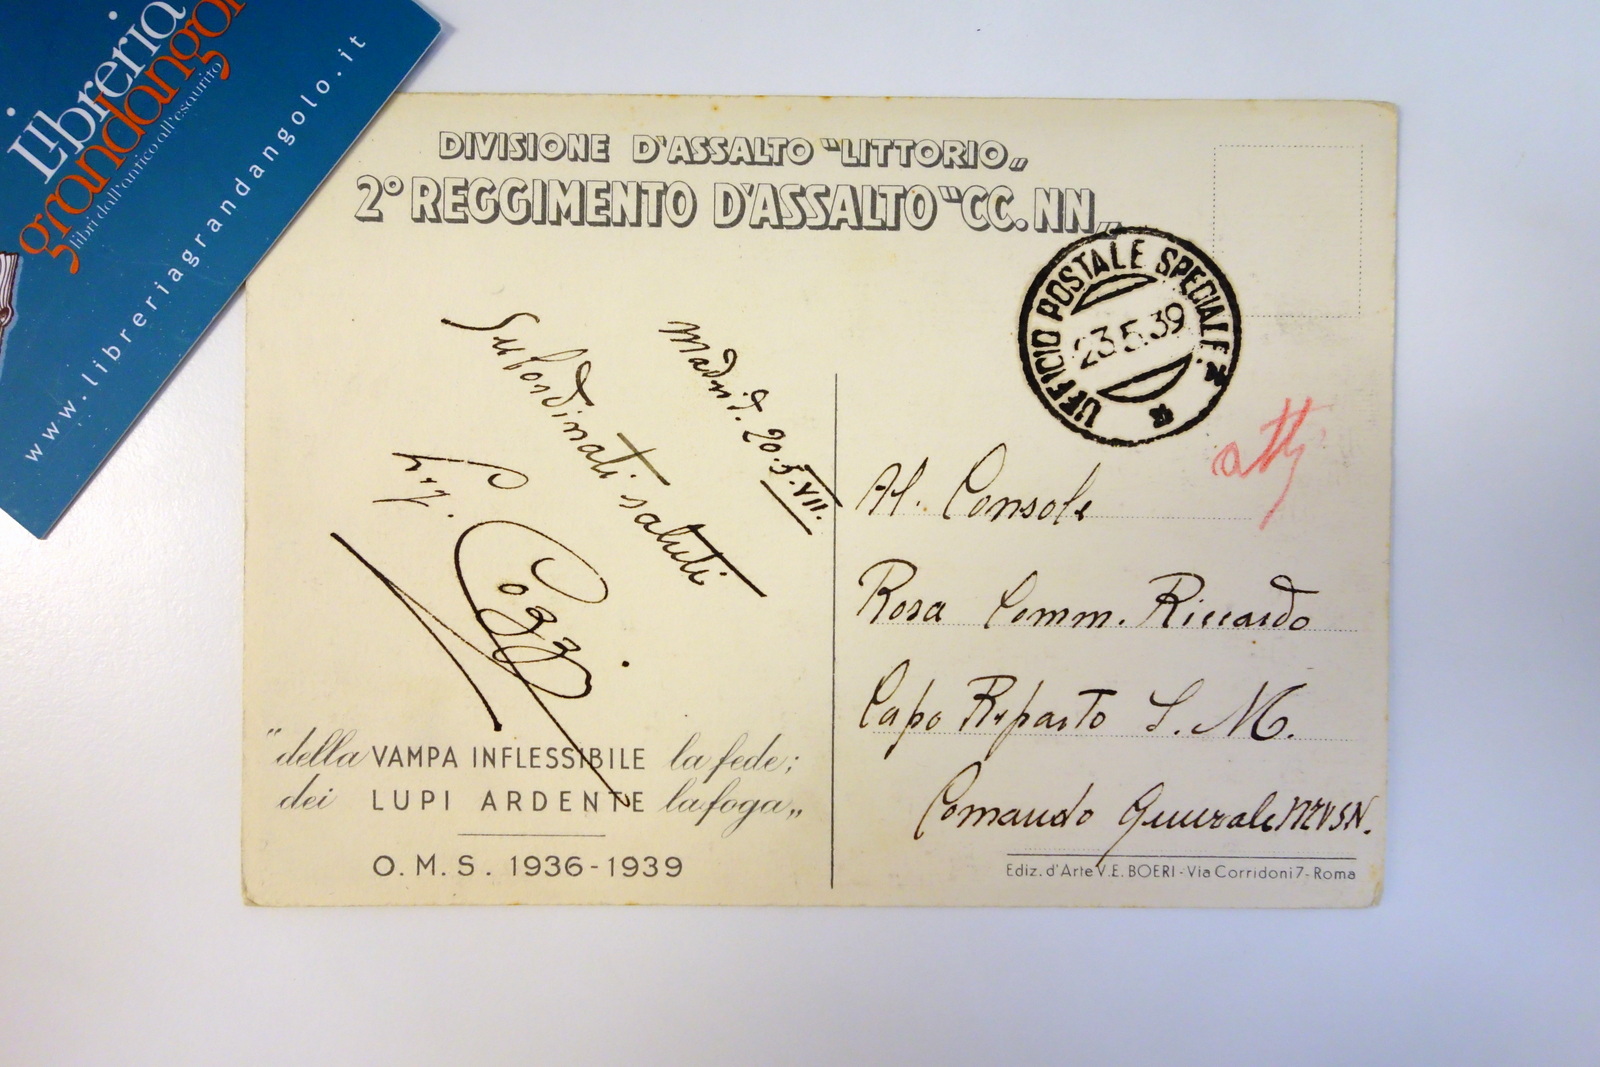 Libreria
grandangolo
libri dall'antico all'esaurito
www.libreriagrandangolo.it
DIVISIONE D'ASSALTO "LITTORIO„
2º REGGIMENTO D'ASSALTO "CC.NN„
UFFICIO POSTALE SPECIALE.
23.5.39
Madrid. 20.5.VII.
Subordinati saluti
Coggi
"della VAMPA INFLESSIBILE la fede;
dei LUPI ARDENTE la foga„
O.M.S. 1936-1939
Al. Console
Rosa Comm. Riccardo
Capo Reparto S.M.
Comando Generale MVSN.
Ediz. d'Arte V.E. BOERI - Via Corridoni 7 - Roma